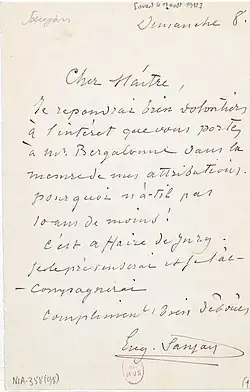 Dimanche 8.
Cher Maître,
Je repondrai bien volontiers
à l'intéret que vous portez
à mr. Bergalonne dans la
mesure de mes attributions.
pourquoi n'a-t-il pas
10 ans de moins!
c'est affaire de Jury.
je le présenterai et je l'ac-
-compagnerai
Compliments bien dévoués
Eug.
NLA-358(98)